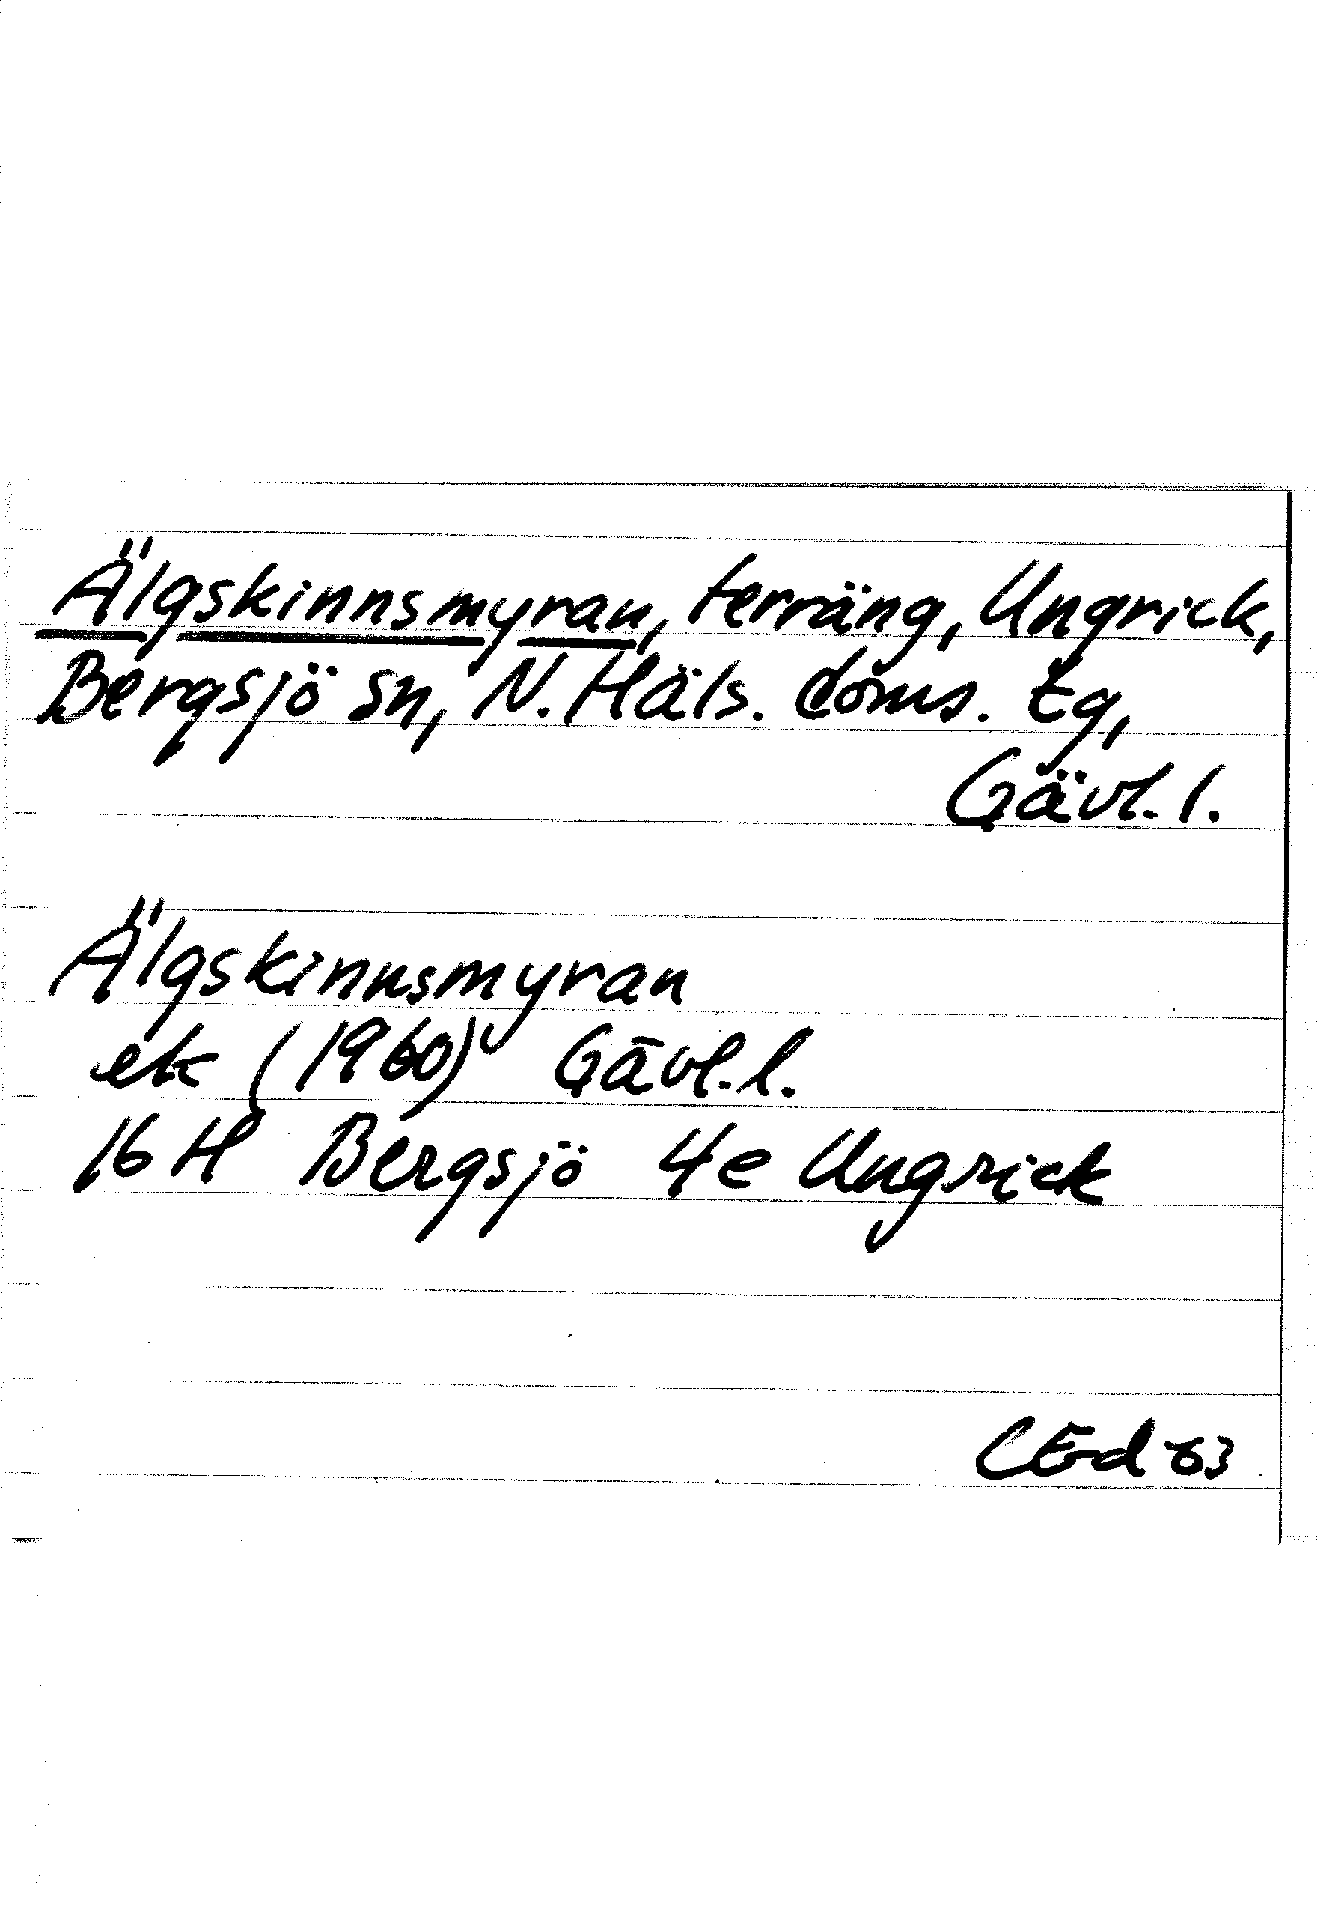 Älgskinnsmyran, terräng, Ungrick,
Bergsjö sn, N. Häls. doms. tg,
Gävl. l.
Älgskinnsmyran
ek (1960) Gävl. l.
16 H Bergsjö 4e Ungrick
CEd 63